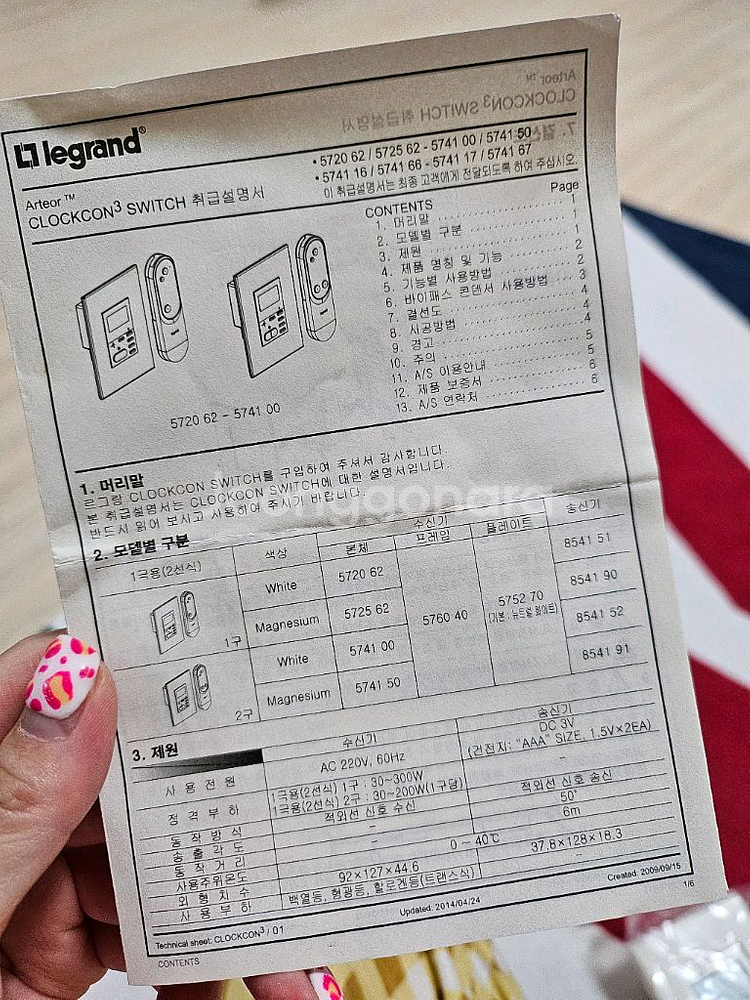 legrand®
Arteor™
CLOCKCON³ SWITCH 취급설명서
• 5720 62 / 5725 62 - 5741 00 / 5741 50
• 5741 16 / 5741 66 - 5741 17 / 5741 67
이 취급설명서는 최종 고객에게 전달되도록 하여 주십시오.
5720 62 - 5741 00
CONTENTS Page
1. 머리말 1
2. 모델별 구분 1
3. 제원 1
4. 제품 명칭 및 기능 2
5. 기능별 사용방법 2
6. 바이패스 콘덴서 사용방법 3
7. 결선도 4
8. 시공방법 4
9. 경고 4
10. 주의 5
11. A/S 이용안내 5
12. 제품 보증서 6
13. A/S 연락처 6
1. 머리말
르그랑 CLOCKCON SWITCH를 구입하여 주셔서 감사합니다.
본 취급설명서는 CLOCKCON SWITCH에 대한 설명서입니다.
반드시 읽어 보시고 사용하여 주시기 바랍니다.
2. 모델별 구분
1극용(2선식) 색상 수신기 송신기
본체 프레임 플레이트
1구 White 5720 62 5760 40 5752 70 8541 51
(기본 : 뉴트럴 화이트)
Magnesium 5725 62 8541 90
2구 White 5741 00 8541 52
Magnesium 5741 50 8541 91
3. 제원
수신기 송신기
사용전원 AC 220V, 60Hz DC 3V
(건전지: "AAA" SIZE, 1.5V×2EA)
정격부하 1극용(2선식) 1구 : 30~300W –
1극용(2선식) 2구 : 30~200W(1구당)
동작방식 적외선 신호 수신 적외선 신호 송신
송출각도 – 50°
동작거리 – 6m
사용주위온도 0 ~ 40℃
외형치수 92×127×44.6 37.8×128×18.3
사용부하 백열등, 형광등, 할로겐등(트랜스식) –
Technical sheet: CLOCKCON³ / 01
Updated: 2014/04/24
Created: 2009/09/15
CONTENTS
1/6